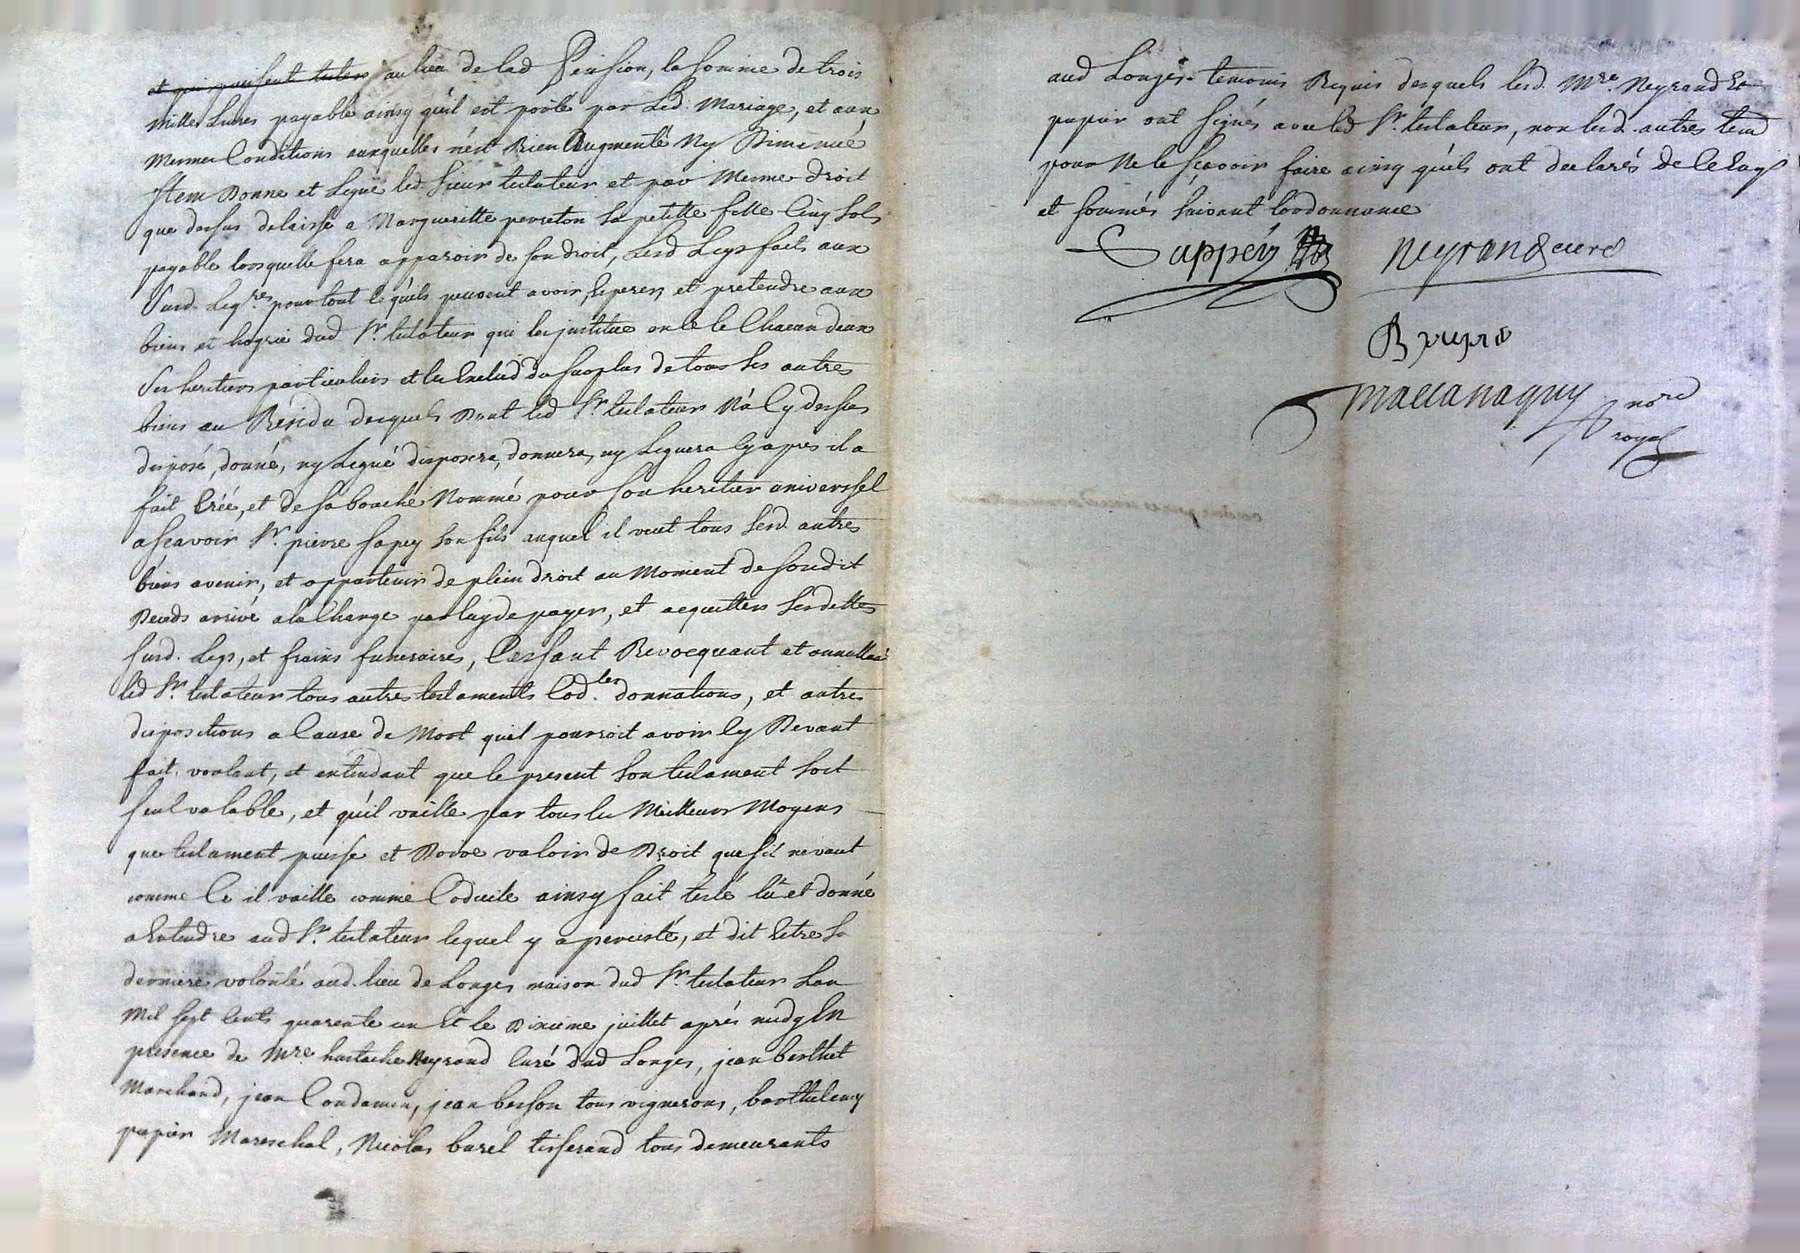 et qui puisent tester au lieu de lad Pension, la somme de trois
mille Livres payable ainsy qu'il est porté par Led. Mariage, et aux
mesmes Conditions auxquelles n'est Rien Augmenté Ny Diminué
Item Donne et Legue led Sieur testateur et par mesme droit
que dessus delaisse a Margueritte peureton sa petitte fille Cinq sols
payable lorsquelle fera apparoir de son droit, Lesd Legs faits aux
susd. Leg.res pour tout ce quils peuvent avoir, esperer, et pretendre aux
biens et hoyrie dud Sr. testateur qui les justitue en ce le Chacun deux
ses heritiers particuliers et les Exclud du surplus de tous ses autres
biens au Residu desquels Dont led Sr. testateur N'a Cy dessus
disposé, donné, ny Legué disposera, donnera, ny Leguera Cy apres il a
fait Créé, et de sa bouche Nommé pour son heritier universsel
asçavoir Sr. pierre sapey son fils auquel il veut tous sesd. autres
biens avenir, et appartenir de plein droit au Moment de sondit
Deceds arrivé a la Charge par luy de payer, et acquitter ses dettes
susd. Legs, et frains funeraires, Cassant Revocquant et annullant
led Sr. testateur tous autres testaments Cod.les donnations, et autres
dispositions a Cause de Mort quil pourroit avoir Cy Devant
fait, voulant, et entendant que le present son testament soit
seul valable, et qu'il vaille par tous les Meilleurs Moyens
que testament puisse et Doive valoir de Droit que s'il ne vaut
comme Ce il vaille comme Codicile ainsy fait testé lû et donné
a Entendre aud Sr. testateur lequel y a percisté, et dit Estre sa
derniere volonté aud. lieu de Longes maison dud Sr. testateur Lan
Mil sept Cents quarente un Et le Dixieme juillet aprés midy En
presence de Mre. hustache Neyrand Curé dud Longes, jean berthet
Marchand, jean Condamin, jean besson tous vignerons, barthelemy
papier Mareschal, Nicolas burel tisserand tous demeurants
aud Longes. temoins Requis desquels lesd. Mre. Neyrand Et
papier ont signés avec led Sr. testateur, non lesd. autres tem
pour Ne le sçavoir faire ainsy quils ont declarés de ce Enq
et sommés suivant l'ordonnance
Sappey
neyrand curé
B papié
Maccanaguy
no.re
royal